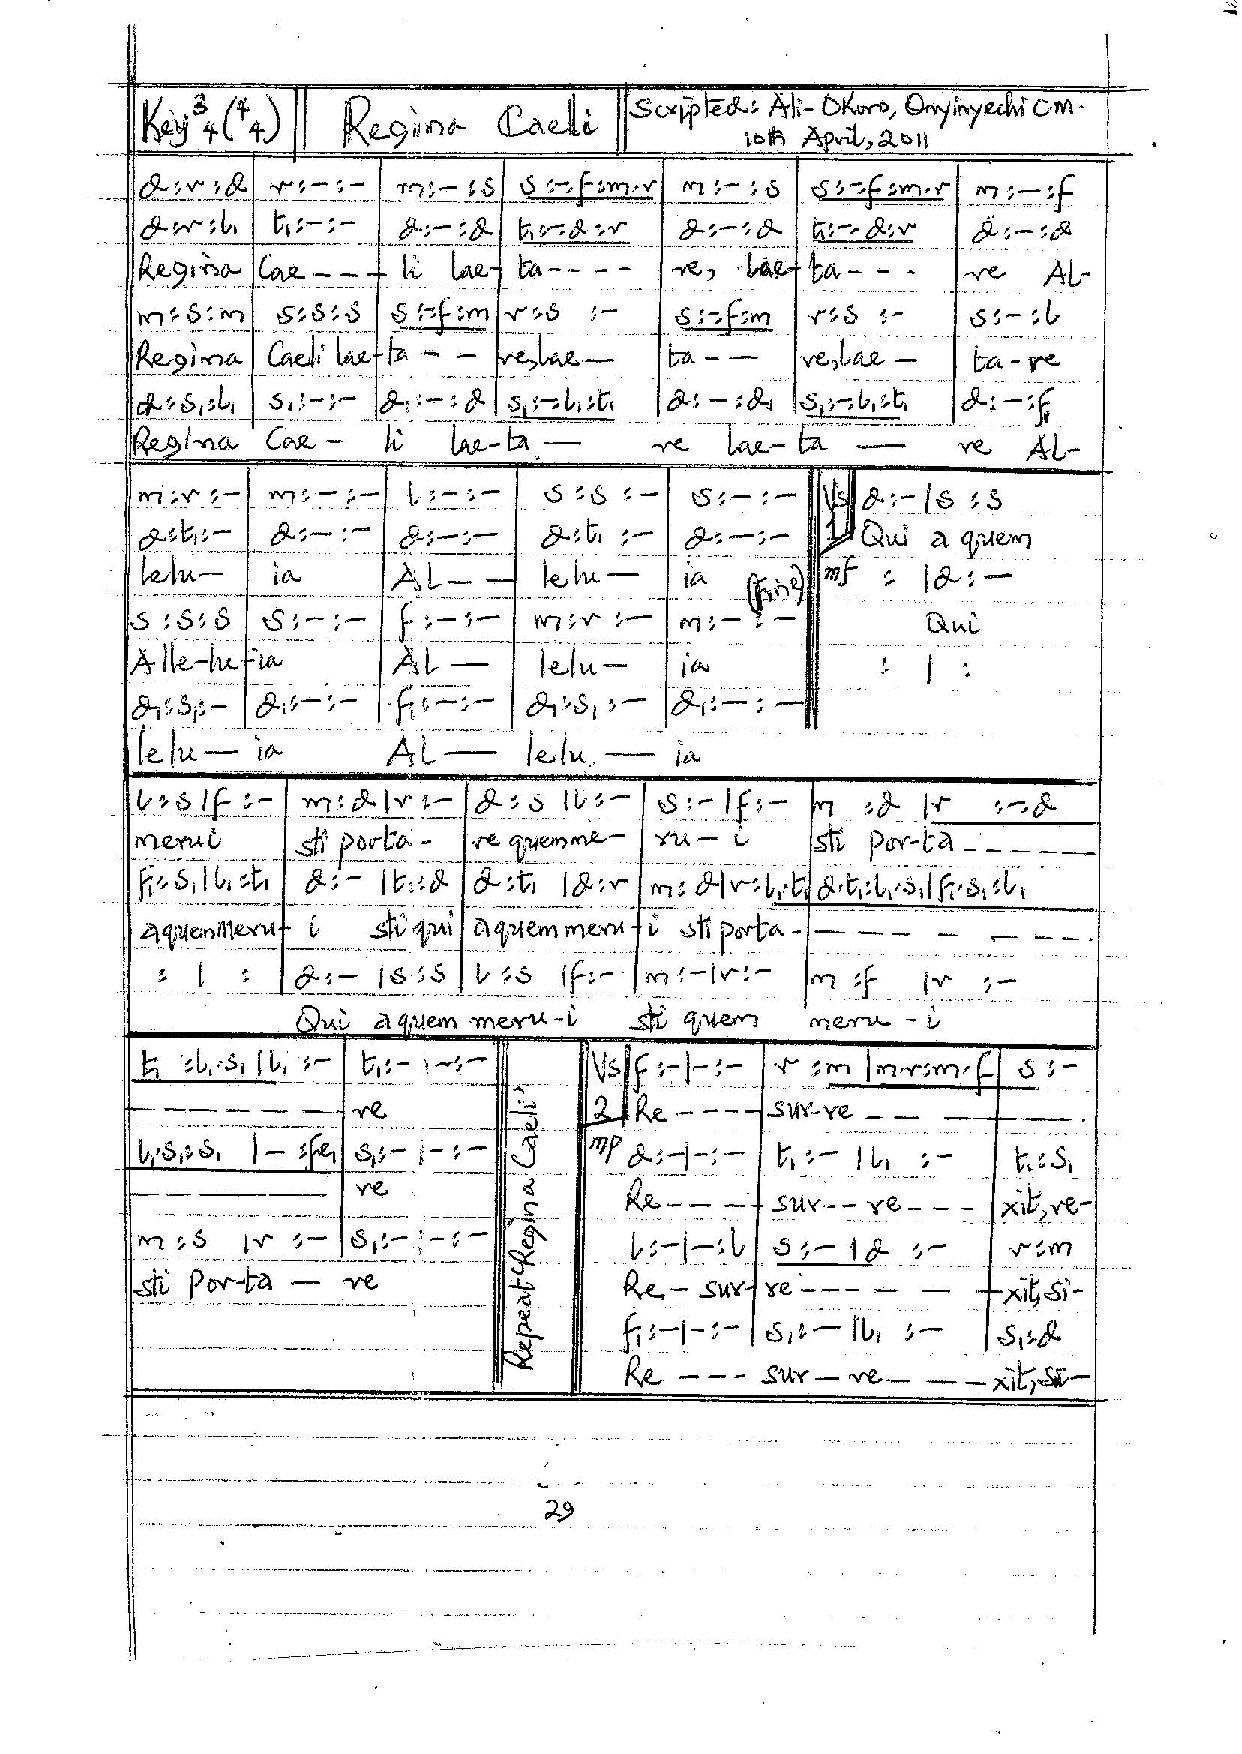 Key 3/4 (4/4) Regina Caeli Scripted: Ali-Okoro, Onyinyechi C.M.
10th April, 2011
d:r:d | r:-:- | m:-:s | s:-.f:m.r | m:-:s | s:-.f:m.r | m:-:f
d:r:l₁ | t₁:-:- | d:-:d | t₁:-.d:r | d:-:d | t₁:-.d:r | d:-:d
Regina Cae---- li lae-ta---- re, lae-ta--- re AL-
m:s:m | s:s:s | s:-.f:m | r:s:- | s:-.f:m | r:s:- | s:-:l
Regina Caeli lae-ta-- re,lae— ta-- re,lae— ta-re
d:s₁:l₁ | s₁:-:- | d₁:-:d | s₁:-.l₁:t₁ | d:-:d₁ | s₁:-.l₁:t₁ | d:-:f₁
Regina Cae- li lae-ta— re lae-ta — re AL-
m:r:- | m:-:- | l:-:- | s:s:- | s:-:- Vs 1 d:-|s:s
d:t₁:- | d:-:- | d:-:- | d:t₁:- | d:-:- Qui a quem
lelu— ia AL-— lelu— ia (fine) mf : |d:-
s:s:s | s:-:- | f:-:- | m:r:- | m:-:- Qui
Alle-lu-ia AL— lelu- ia : | :
d₁:s₁:- | d₁:-:- | f₁:-:- | d₁:s₁:- | d₁:-:-
lelu— ia AL— lelu — ia
l:s|f:- | m:d|r:- | d:s|l:- | s:-|f:- | m:d|r:-.d
merui sti porta- re quemme- ru-i sti por-ta------
f₁:s₁|l₁:t₁ | d:-|t₁:d | d:t₁|d:r | m:d|r:l₁.t₁ | d.t₁:l₁.s₁|f₁.s₁:l₁
aquemmeru-i sti qui aquemmeru-i sti porta--------
: | : | d:-|s:s | l:s|f:- | m:-|r:- | m:f|r:-
Qui aquem meru-i sti quem meru-i
t₁:l₁.s₁|l₁:- | t₁:-|-:- Repeat "Regina Caeli" Vs 2 f:-|-:- | r:m|m.r:m.f | s:-
------- re Re---- sur-re-- --
l₁.s₁:s₁|-:fe₁ | s₁:-|-:- mp d:-|-:- | t₁:-|l₁:- | t₁:s₁
------- re Re---- sur--re--- xit,re-
m:s|r:- | s₁:-|-:- l:-|-:l | s:-|d:- | r:m
sti Por-ta — re Re-sur-re----- -xit,si-
f₁:-|-:- | s₁:-|l₁:- | s₁:d
Re --- sur—re----xit,si-
29